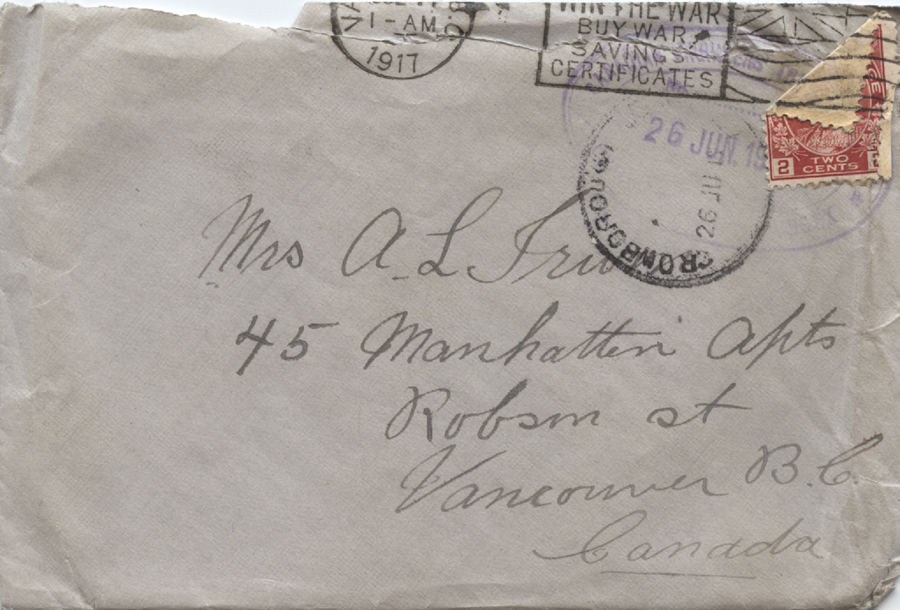 1-AM
1917
WIN THE WAR
BUY WAR
SAVINGS
CERTIFICATES
26 JUN. 19
26 JU
CROWBOROUGH
2 TWO CENTS
Mrs A. L.
45 Manhattin Apts
Robson st
Vancouver B.C.
Canada